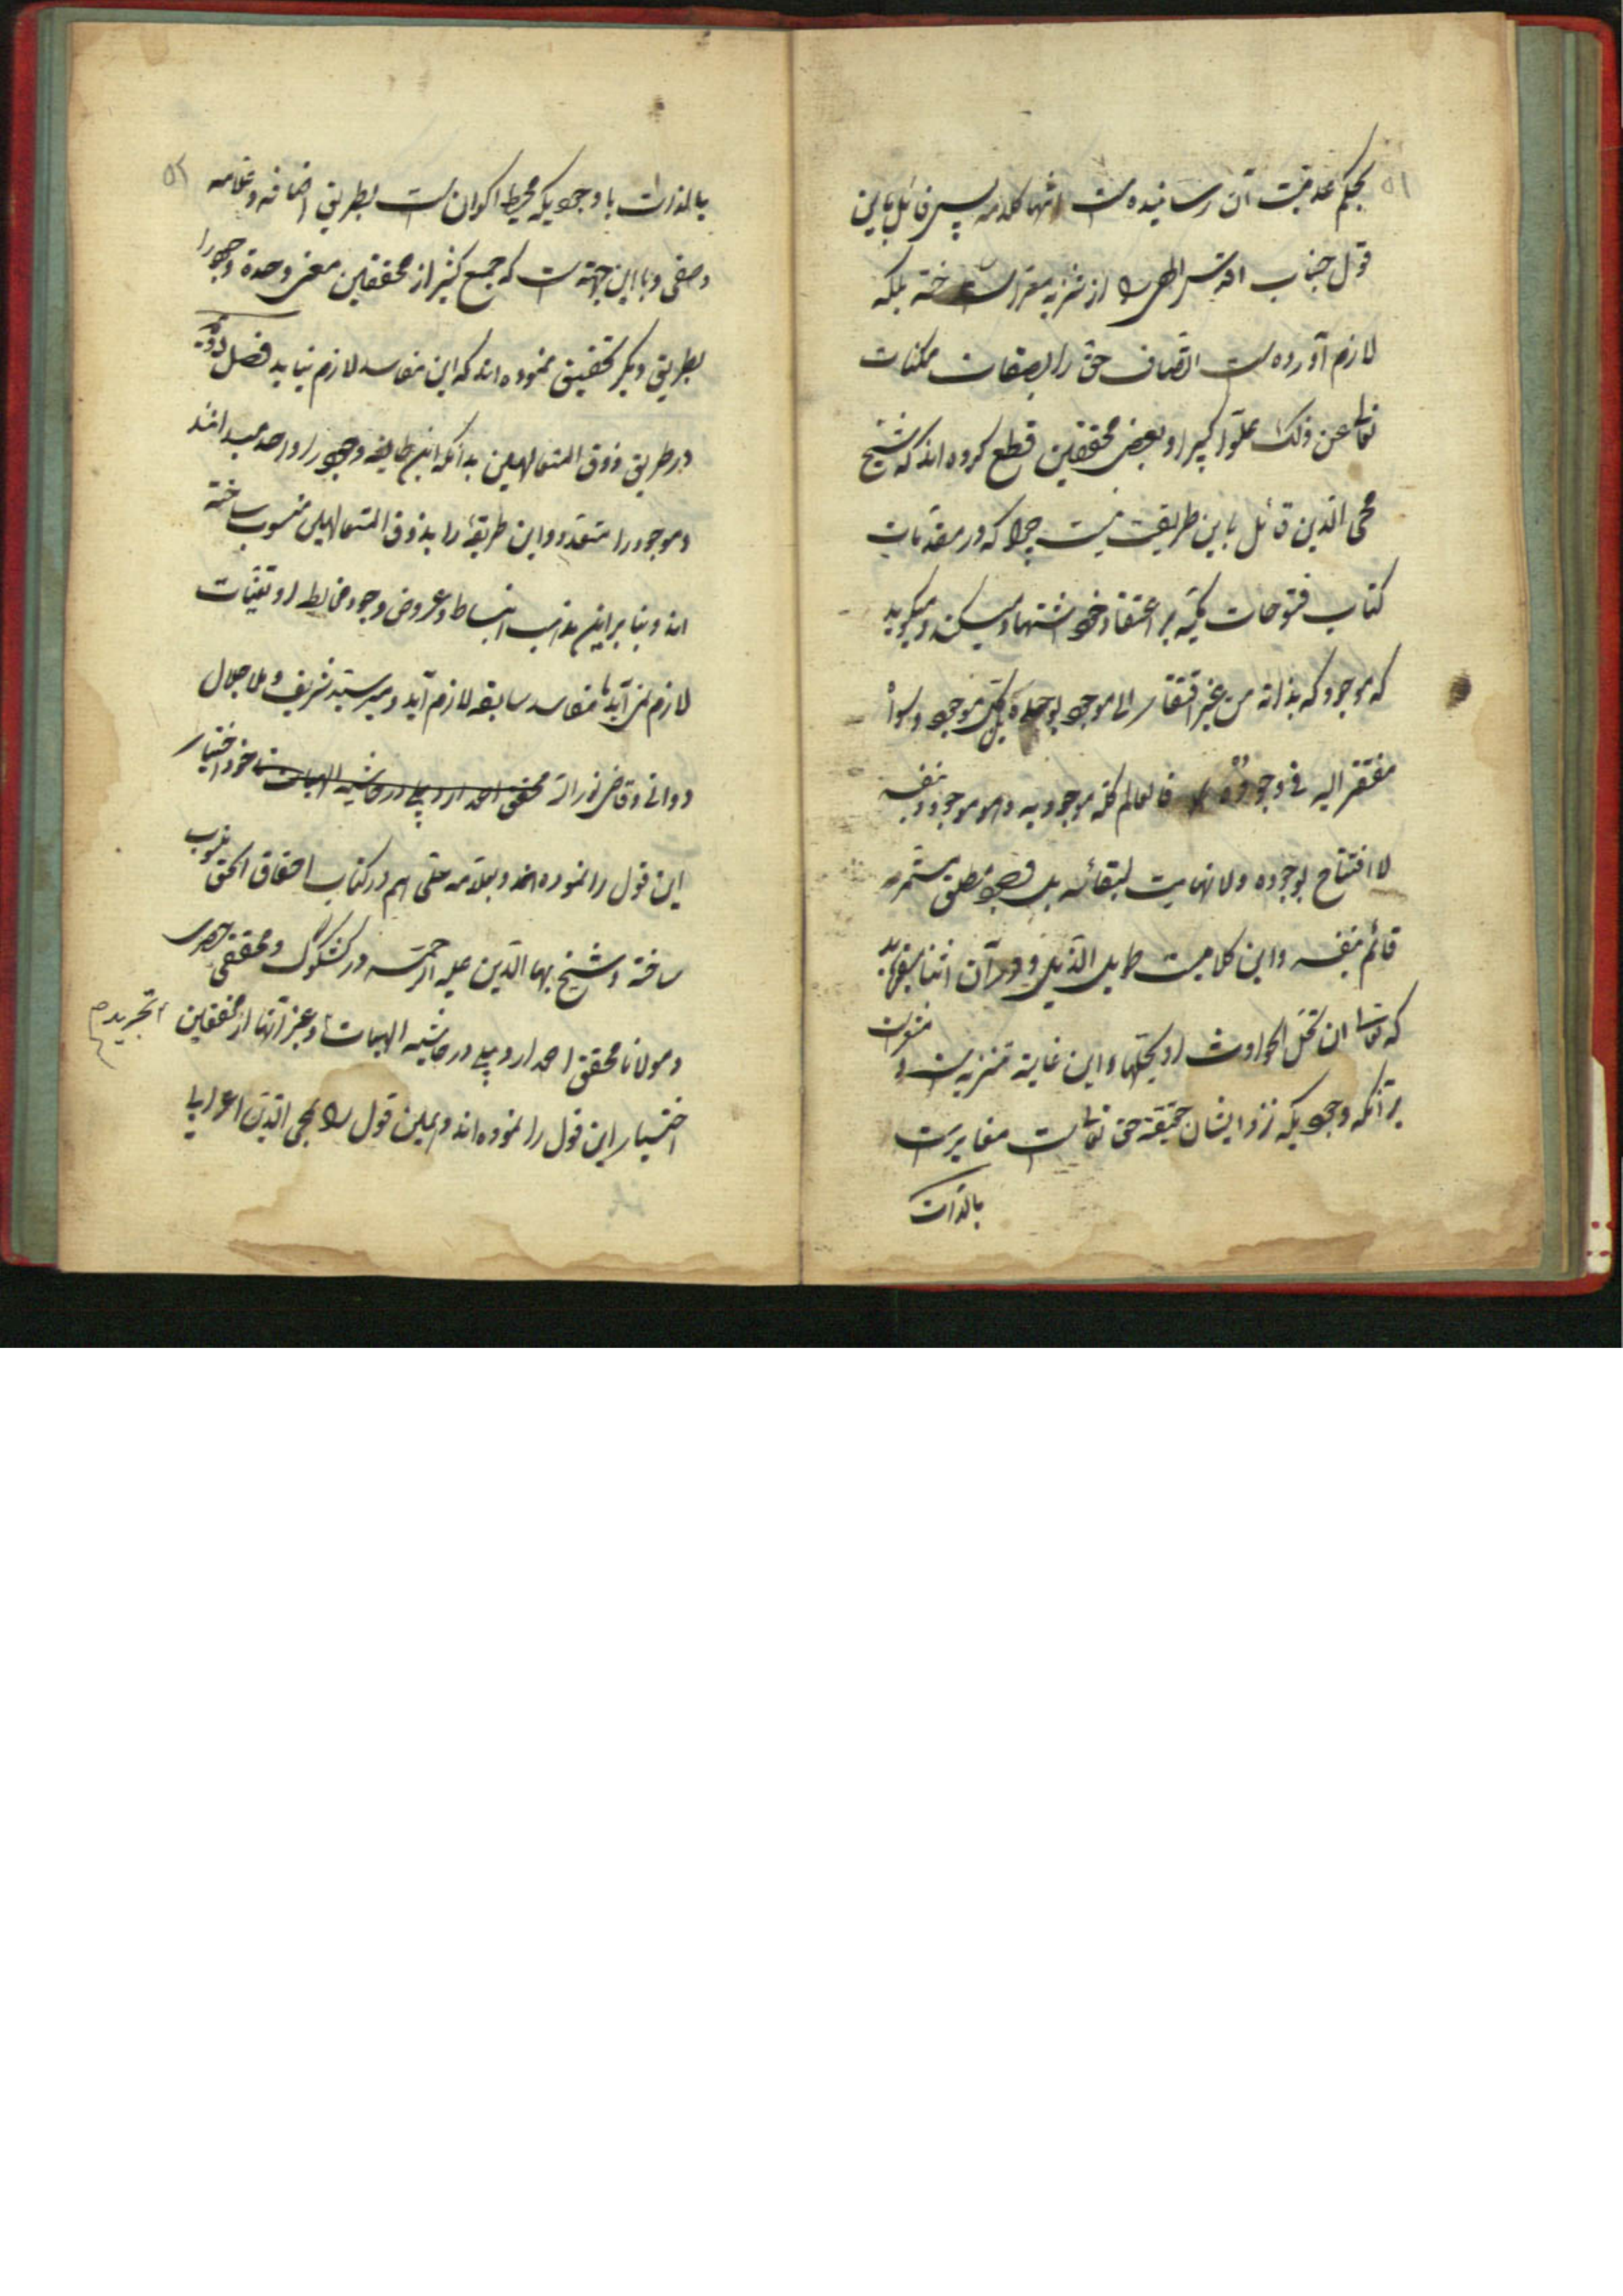 ۵۱
بحکم عدمیت آن رسانیده است انتهی کلامه پس قائل باین
قول جناب اقدس الهی را از تنزیه معرا ساخته بلکه
لازم آورده است اتصاف حق را بصفات ممکنات
تعالی عن ذلک علوا کبیرا و بعض محققین قطع کرده اند که شیخ
محی الدین قائل باین طریقت نیست چرا که در مقدمات
کتاب فتوحات مکیه بر اعتقاد خود استشهاد میکند و میگوید
که موجود که بذاته من غیر افتقار الی موجد یوجده بل کل موجود سواه
مفتقر الیه فی وجوده فالعالم کله موجود به و هو موجود بنفسه
لا افتتاح لوجوده ولا نهایت لبقائه بل وجود مطلق مستمر
قائم بنفسه و این کلامیست طویل الذیل و در آن اثنا میفرماید
که تعالی ان تحل الحوادث او یحلها و این غایة تنزیه است و
برآنکه وجودیکه نزد ایشان حقیقة حق تعالی است مغایرست
بالذات
۵۲
بالذات با وجودیکه محیط اکوان است بطریق اضافه و علامه
وصفی و با این جهة است که جمع کثیر از محققین معنی وحدة وجود را
بطریق دیگر تحقیق نموده اند که این مفاسد لازم نیاید فصل دویم
در طریق ذوق المتالهین بدانکه این طایفه وجود را واحد میدانند
و موجود را متعدد و این طریقه را بذوق المتالهین منسوب ساخته
اند و بنا بر این مذهب انبساط و عروض وجود مخالط او تعینات
لازم نمی آید تا مفاسد سابقه لازم آید و میر سید شریف و ملا جلال
دوانی و قاضی نورالله محقق احمد اردبیلی در حاشیه الهیات خود اختیار
این قول را نموده اند و بعلامه حلی هم در کتاب احقاق الحق منسوب
ساخته و شیخ بهاء الدین علیه الرحمه در کشکول و محقق خضری
و مولانا محقق احمد اردبیلی در حاشیه الهیات و غیر آنها از محققین
تجرید
اختیار این قول را نموده اند و همین قول را محی الدین اعرابی